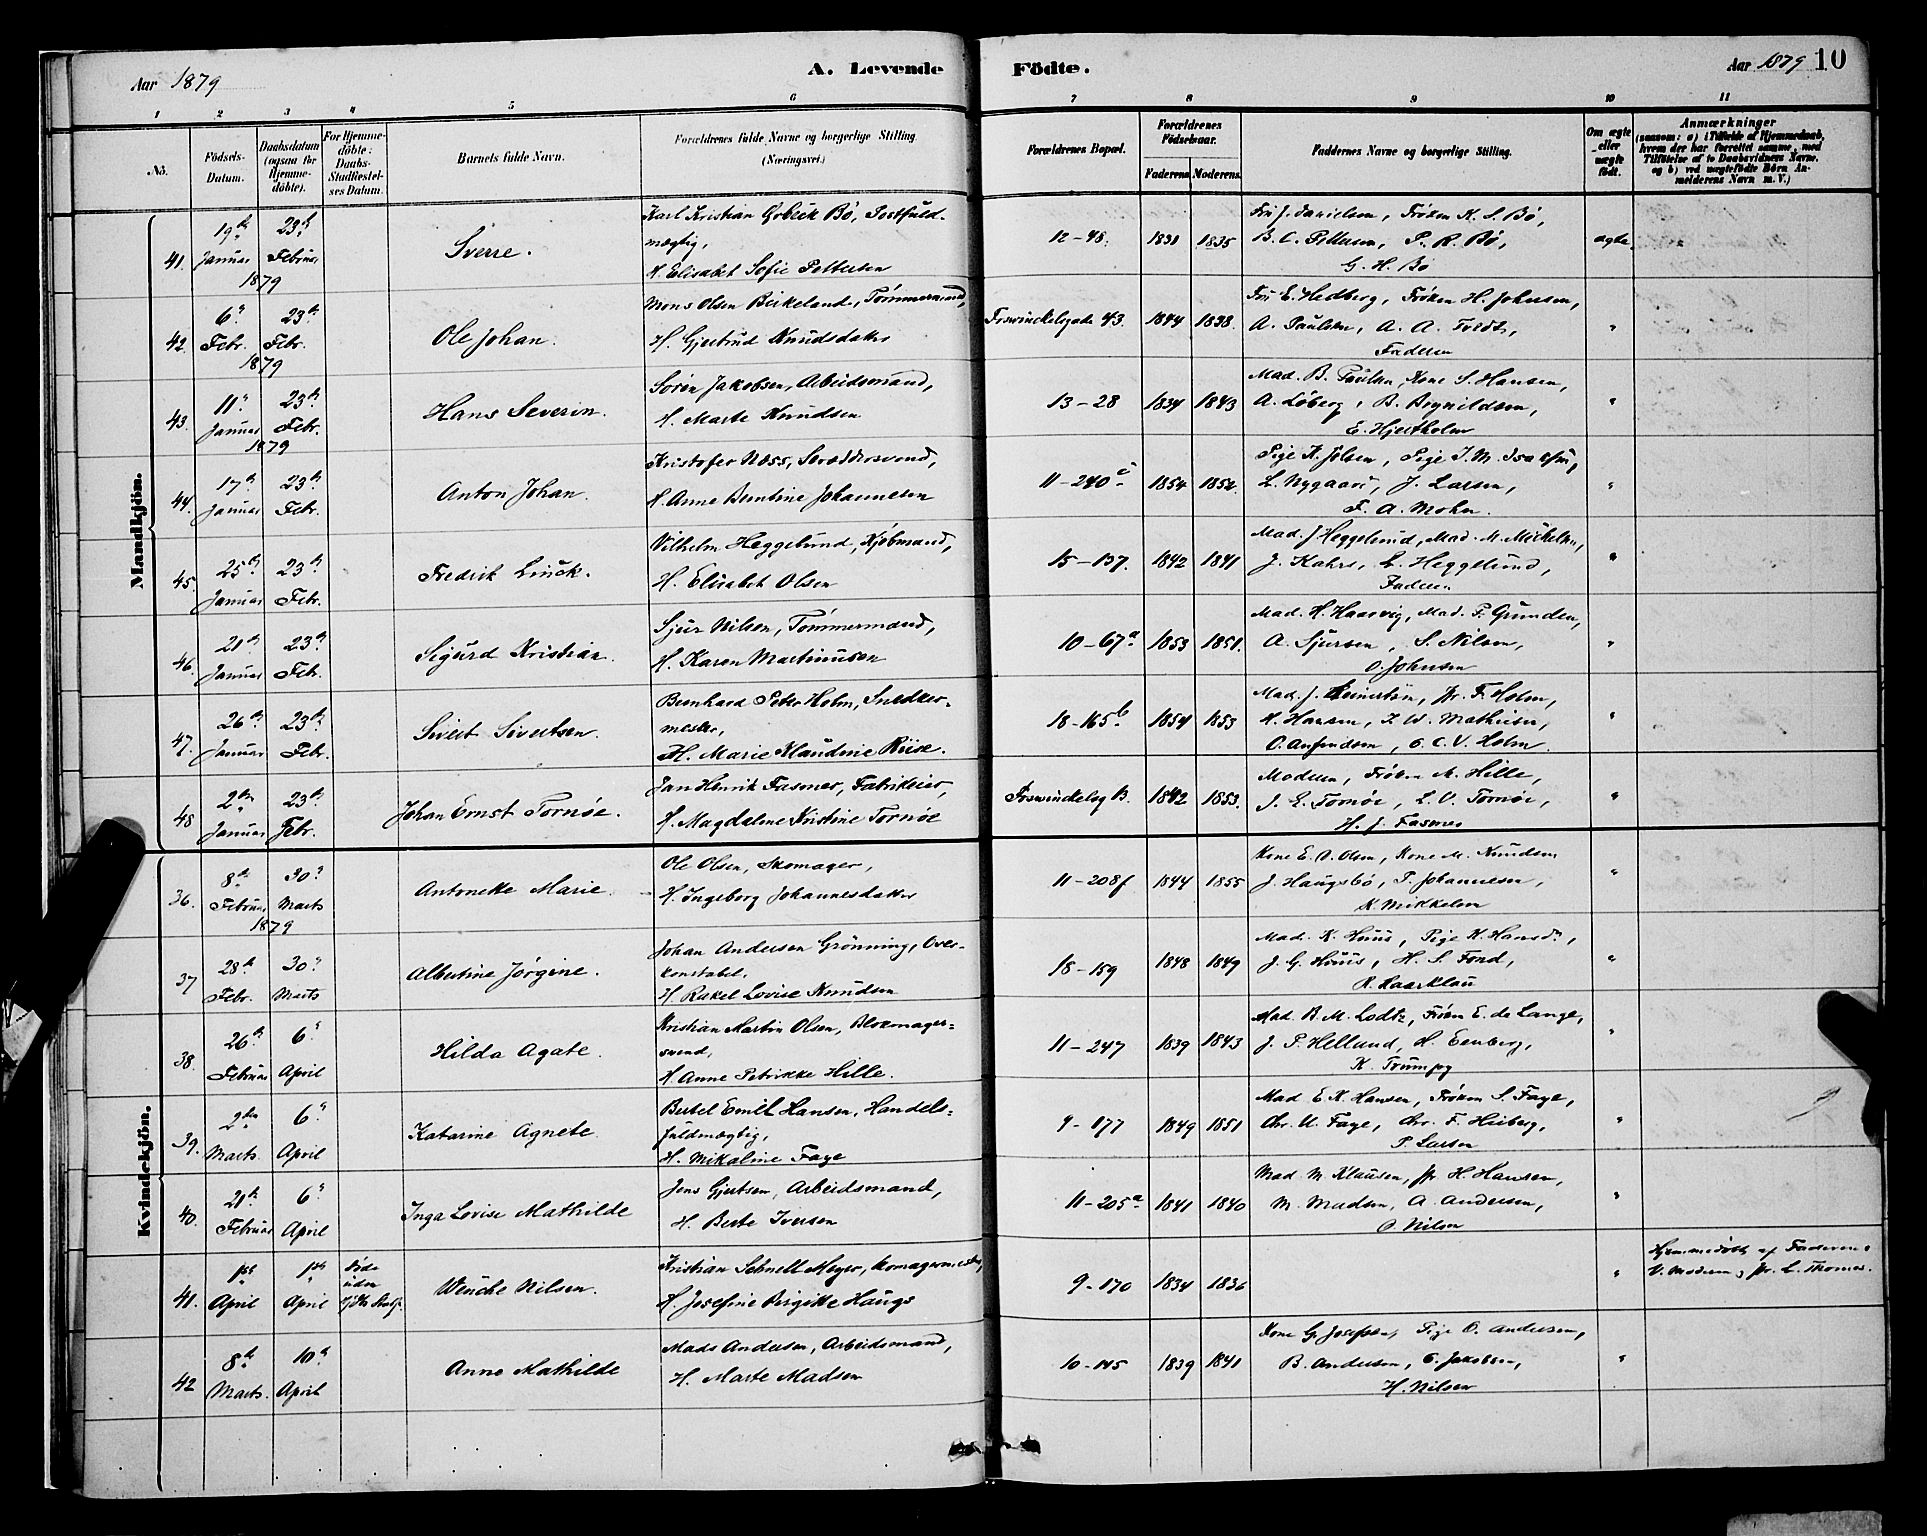 Aar 1879
A. Levende
Födte.
Aar 1879
10
1 2 3 4 5 6 7 8 9 10 11
No.
Födsels-Datum.
Daabsdatum (ogsaa for Hjemme-döbte).
For Hjemme-döbte: Daabs-Stadfæstel-ses Datum.
Barnets fulde Navn.
Forældrenes fulde Navne og borgerlige Stilling (Næringsvei.)
Forældrenes Bopæl.
Forældrenes Födselsaar.
Faderens Moderens.
Faddernes Navne og borgerlige Stilling.
Om ægte eller uægte födt.
Anmærkninger
(saasom: a) i Tilfælde af Hjemmedaab, hvem der har forrettet samme, med Tilföielse af to Daabsvidners Navne, og b) ved uægtefödte Börn An-melderens Navn m. V.)
Mandkjön.
41. 19de Januar 1879 23de Februar Sverre. Karl Kristian Bö, Postfuld-mægtig, H. Elisabet Sofie Pettersen 12-48. 1831 1835 Fru J. Danielsen, Fröken K. S. Bö, B. C. Pettersen, P. R. Bö, G. H. Bö ægte.
42. 6te Febr. 1879 23de Febr. Ole Johan. Mons Olsen Birkeland, Tömmermand, H. Gjertrud Knudsdatter 43. 1844 1838. Fru E. Hedberg, Fröken H. Johnsen, A. Paulsen, A. A. Faderen "
43. 11te Januar 1879 23de Febr. Hans Severin. Sören Jakobsen, Arbeidsmand, H. Marte Knudsen 13-28 1834 1843 Mad. B. Paulsen, Kone S. Hansen, A. Löberg, B. Brynildsen, E. Hjertholm "
44. 17de Januar 23de Febr. Anton Johan. Kristofer Næss, Skræddersvend, H. Anne Berntine Johannesen 11-240 1854 1852. Pige K. Jolsen, Pige I. M. Isaksen, L. Nygaard, J. Larsen, F. A. Mohn. "
45. 25de Januar 23de Febr. Fredrik Linck. Vilhelm Heggelund, Kjöbmand, H. Elisabet Olsen 15-137. 1842 1841 Mad. J. Heggelund, Mad. M. Michelsen, J. Kahrs, L. Heggelund, Faderen. "
46. 21de Januar 23de Febr. Sigurd Kristian. Sjur Nilsen, Tömmermand, H. Karen Martinusen 10-67a 1853 1851. Mad. H. Haasvig, Mad. F. Gundersen, A. Sjursen, S. Nilsen, O. Johnsen "
47. 26de Januar 23de Febr. Sivert Sivertsen. Bernhard Peter Holm, Snedker-mester, H. Marie Klaudine Riise. 18-165b 1854 1853 Mad. J. fr. F. Holm, K. Hansen, F. W. Mathisen, O. Anfindsen, O. C. V. Holm. "
48 2den Januar 23de Febr. Johan Ernst Tornöe. Jan Henrik Fasmer, Fabrikeier, H. Magdalene Kristine Tornöe B. 1842 1853. Moderen, Fröken M. Hille, J. E. Tornöe, L. V. Tornöe, H. J. Fasmer "
Kvindekjön.
36. 8de Februar 1879 30te Marts Antonette Marie. Ole Olsen, Skomager, H. Ingeborg Johannesdatter 11-208f 1844 1855 Kone E. O. Olsen, Kone M. Knudsen J. Haugsbö, P. Johannesen, K. Mikkelsen "
37 28de Febr. 30te Marts Albertine Jörgine. Johan Andersen Grönning, Over-konstabel, H. Rakel Lovise Knudsen 18-159 1848 1849 Mad. K. Huus, Pige K. Hansd., J. G. Huus, H. S. Fond, R. Kaarklau "
38. 26de Februar 6te April Hilda Agate. Kristian Martin Olsen, Blokmager-svend, H. Anne Petrikke Hille. 11-247 1839 1843 Mad. B. M. Lodtz, Fröken E. de Lange, J. P. Hellund, H. Eenberg, K. Trumpy "
39. 2den Marts. 6te April Katarine Agnete. Bertel Emil Hansen, Handels-fuldmægtig, H. Mikaline Faye 9-177 1849 1851 Mad E. K. Hansen, Fröken S. Faye, Chr. U. Faye, Chr. F. Heiberg, P. Larsen "
40. 21de Februar 6te April Inga Lovise Mathilde Jens Gjertsen, Arbeidsmand, H. Berte Iversen 11-205a 1841 1840 Mad M. Klausen, fr. H. Hansen, M. Madsen, A. Andersen, O. Nilsen "
41. 1ste April 1ste April Döde uden Wenche Nilsen. Kristian Schnell Meyer, Skomagermester, H. Josefine Birgitte Haugs 9-170 1834 1836 " Hjemmedöbt af Faderen. V. Moderen, fr. L. Thomas.
42 8de Marts. 10de April Anne Mathilde Mads Andersen, Arbeidsmand, H. Marte Madsen 10-145 1839 1841 Kone G. Josefsen, Pige O. Andersen, B. Andersen, C. Jakobsen, H. Nilsen "